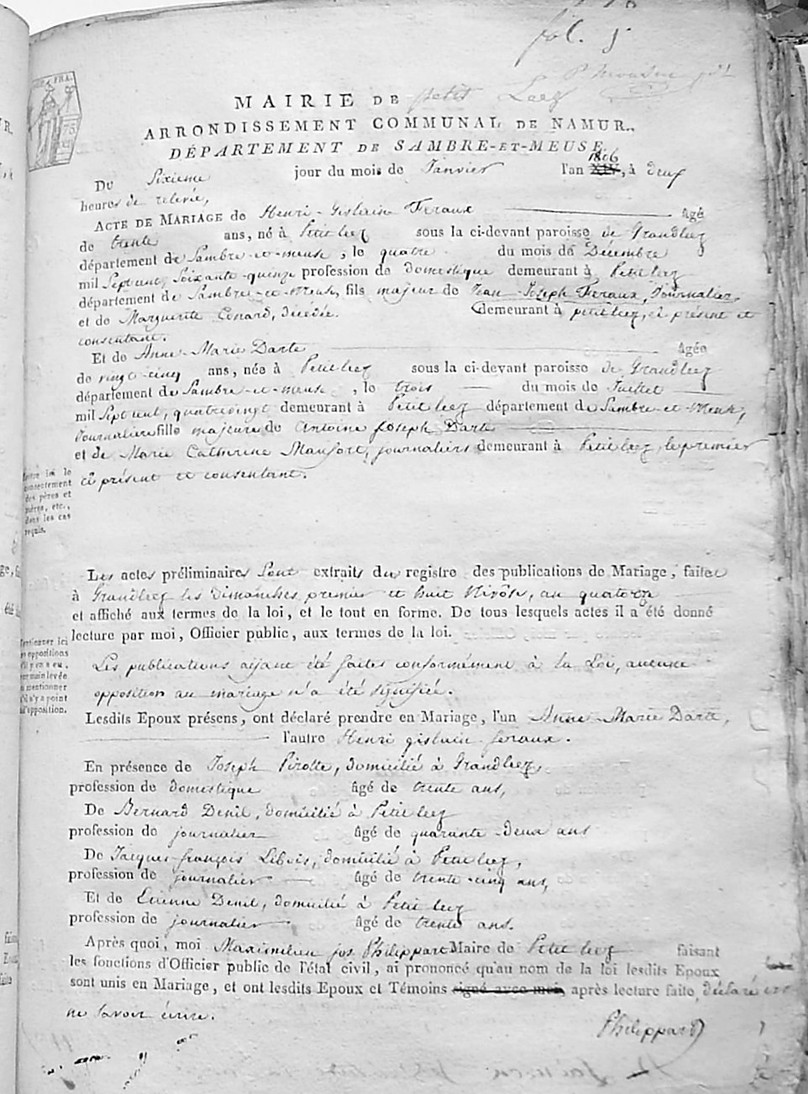 fol. 5
MAIRIE DE petit Leez
ARRONDISSEMENT COMMUNAL DE NAMUR.
DÉPARTEMENT DE SAMBRE-ET-MEUSE.
Du Sixieme jour du mois de Janvier l'an 1806 XIV, à deux
heures de relevée,
ACTE DE MARIAGE de Henri-Gislain Feraux âgé
de trente ans, né à Petit leez sous la ci-devant paroisse de Grandleez
département de Sambre-et-meuse, le quatre du mois de Décembre
mil Sept cent, Soixante-quinze profession de domestique demeurant à Petit leez
département de Sambre-et-Meuse, fils majeur de Jean-Joseph Feraux, Journalier,
et de Marguerite Conard, décédée. demeurant à petit leez, ci présent et
consentant.
Et de Anne-Marie Darte âgée
de vingt-cinq ans, née à Petit leez sous la ci-devant paroisse de Grandleez
département de Sambre-et-meuse, le trois du mois de Juillet
mil Sept cent, quatrevingt demeurant à Petit leez département de Sambre-et-Meuse,
Journaliere fille majeure de Antoine Joseph Darte
et de Marie Catherine Maufort, journaliers demeurant à Petit leez, le premier
ci présent et consentant.
Les actes préliminaires Sont extraits du registre des publications de Mariage, faites
à Grandleez les Dimanches premier et huit Nivôse, an quatorze
et affiché aux termes de la loi, et le tout en forme. De tous lesquels actes il a été donné
lecture par moi, Officier public, aux termes de la loi.
Les publications aijant été faites conformément à la Loi, aucune
opposition au mariage n'a été signifiée.
Lesdits Epoux présens, ont déclaré prendre en Mariage, l'un Anne-Marie Darte,
l'autre Henri gislain feraux.
En présence de Joseph Pirotte, domicilié à Grandleez,
profession de domestique âgé de trente ans,
De Bernard Denil, domicilié à Petit leez
profession de journalier âgé de quarante-deux ans
De Jacques-françois Lebois, domicilié à Petit leez,
profession de journalier âgé de trente-cinq ans,
Et de Etienne Denil, domicilié à Petit leez
profession de journalier âgé de trente ans.
Après quoi, moi Maximilien jos Philippart Maire de Petit leez faisant
les fonctions d'Officier public de l'état civil, ai prononcé qu'au nom de la loi lesdits Epoux
sont unis en Mariage, et ont lesdits Epoux et Témoins signé avec moi, après lecture faite, déclaré
ne savoir écrire.
Philippart